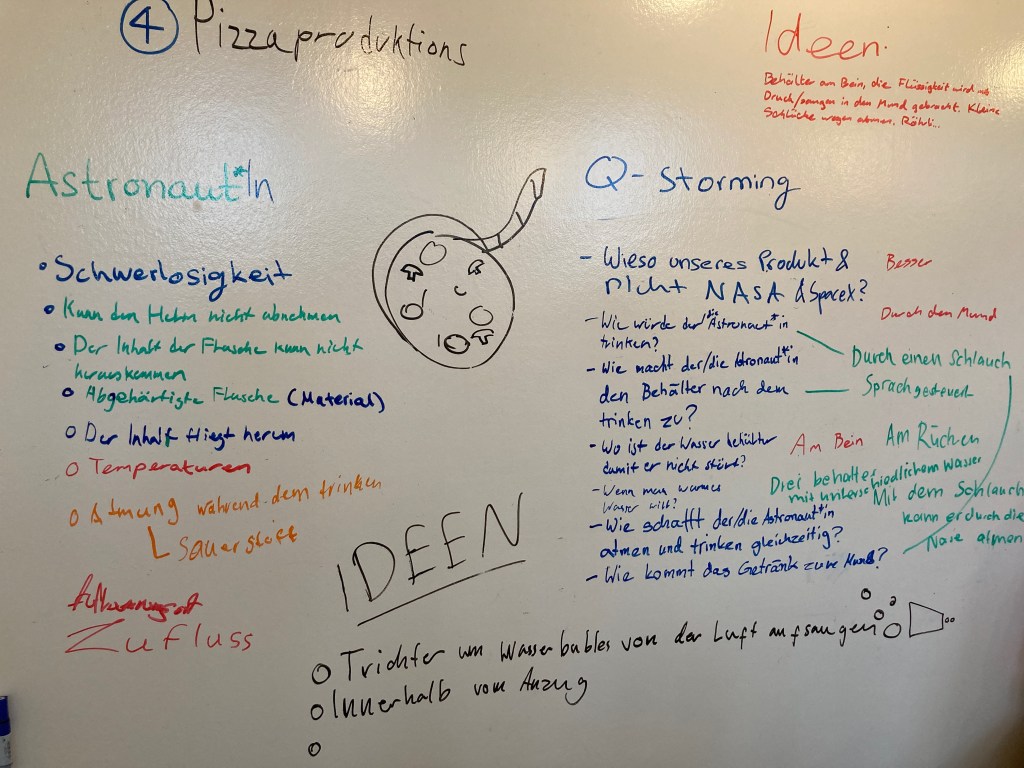 ④ Pizzaproduktions
Ideen
Behälter am Bein, die Flüssigkeit wird mit
Druck/saugen in den Mund gebracht. Kleine
Schlücke wegen atmen. Röhrli...
Astronaut*In
• Schwerlosigkeit
• Kann den Helm nicht abnehmen
• Der Inhalt der Flasche kann nicht
herauskommen
• Abgehärtigte Flasche (Material)
○ Der Inhalt fliegt herum
○ Temperaturen
○ Atmung während dem trinken
Sauerstoff
Zufluss
Q-Storming
- Wieso unseres Produkt &
nicht NASA & SpaceX?
Besser
- Wie würde der/die Astronaut*in
trinken?
Durch den Mund
Durch einen Schlauch
- Wie macht der/die Astronaut*in
den Behälter nach dem
trinken zu?
Sprachgesteuert
- Wo ist der Wasser behälter
damit er nicht stört?
Am Bein
Am Rücken
- Wenn man warmes
Wasser will?
Drei behälter
mit unterschiedlichem Wasser
- Wie schafft der/die Astronaut*in
atmen und trinken gleichzeitig?
Mit dem Schlauch
kann er durch die
Nase atmen
- Wie kommt das Getränk zum Mund?
IDEEN
○ Trichter um Wasserbubles von der Luft aufsaugen
○ Innerhalb vom Anzug
○